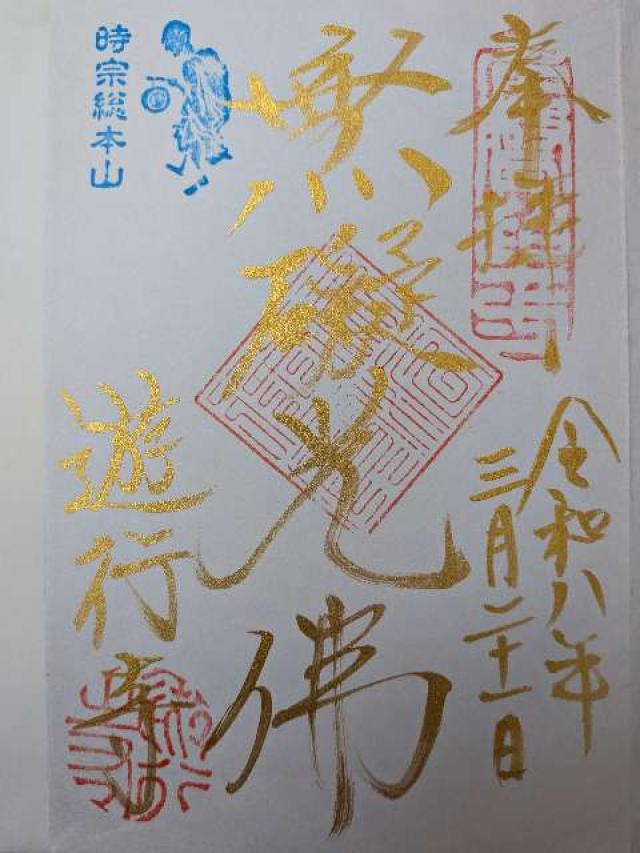 奉拝
令和八年
三月二十一日
無礙光佛
遊行寺
時宗総本山